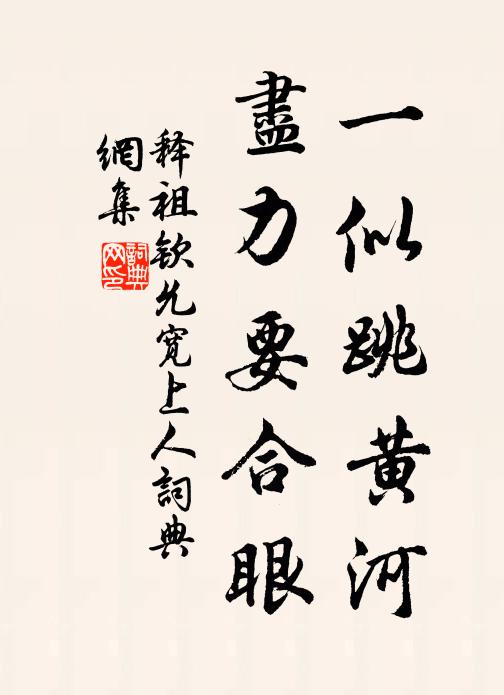 一似跳黄河
盡力要合眼
释祖欽允寛上人詞典
網集
詞典
网印